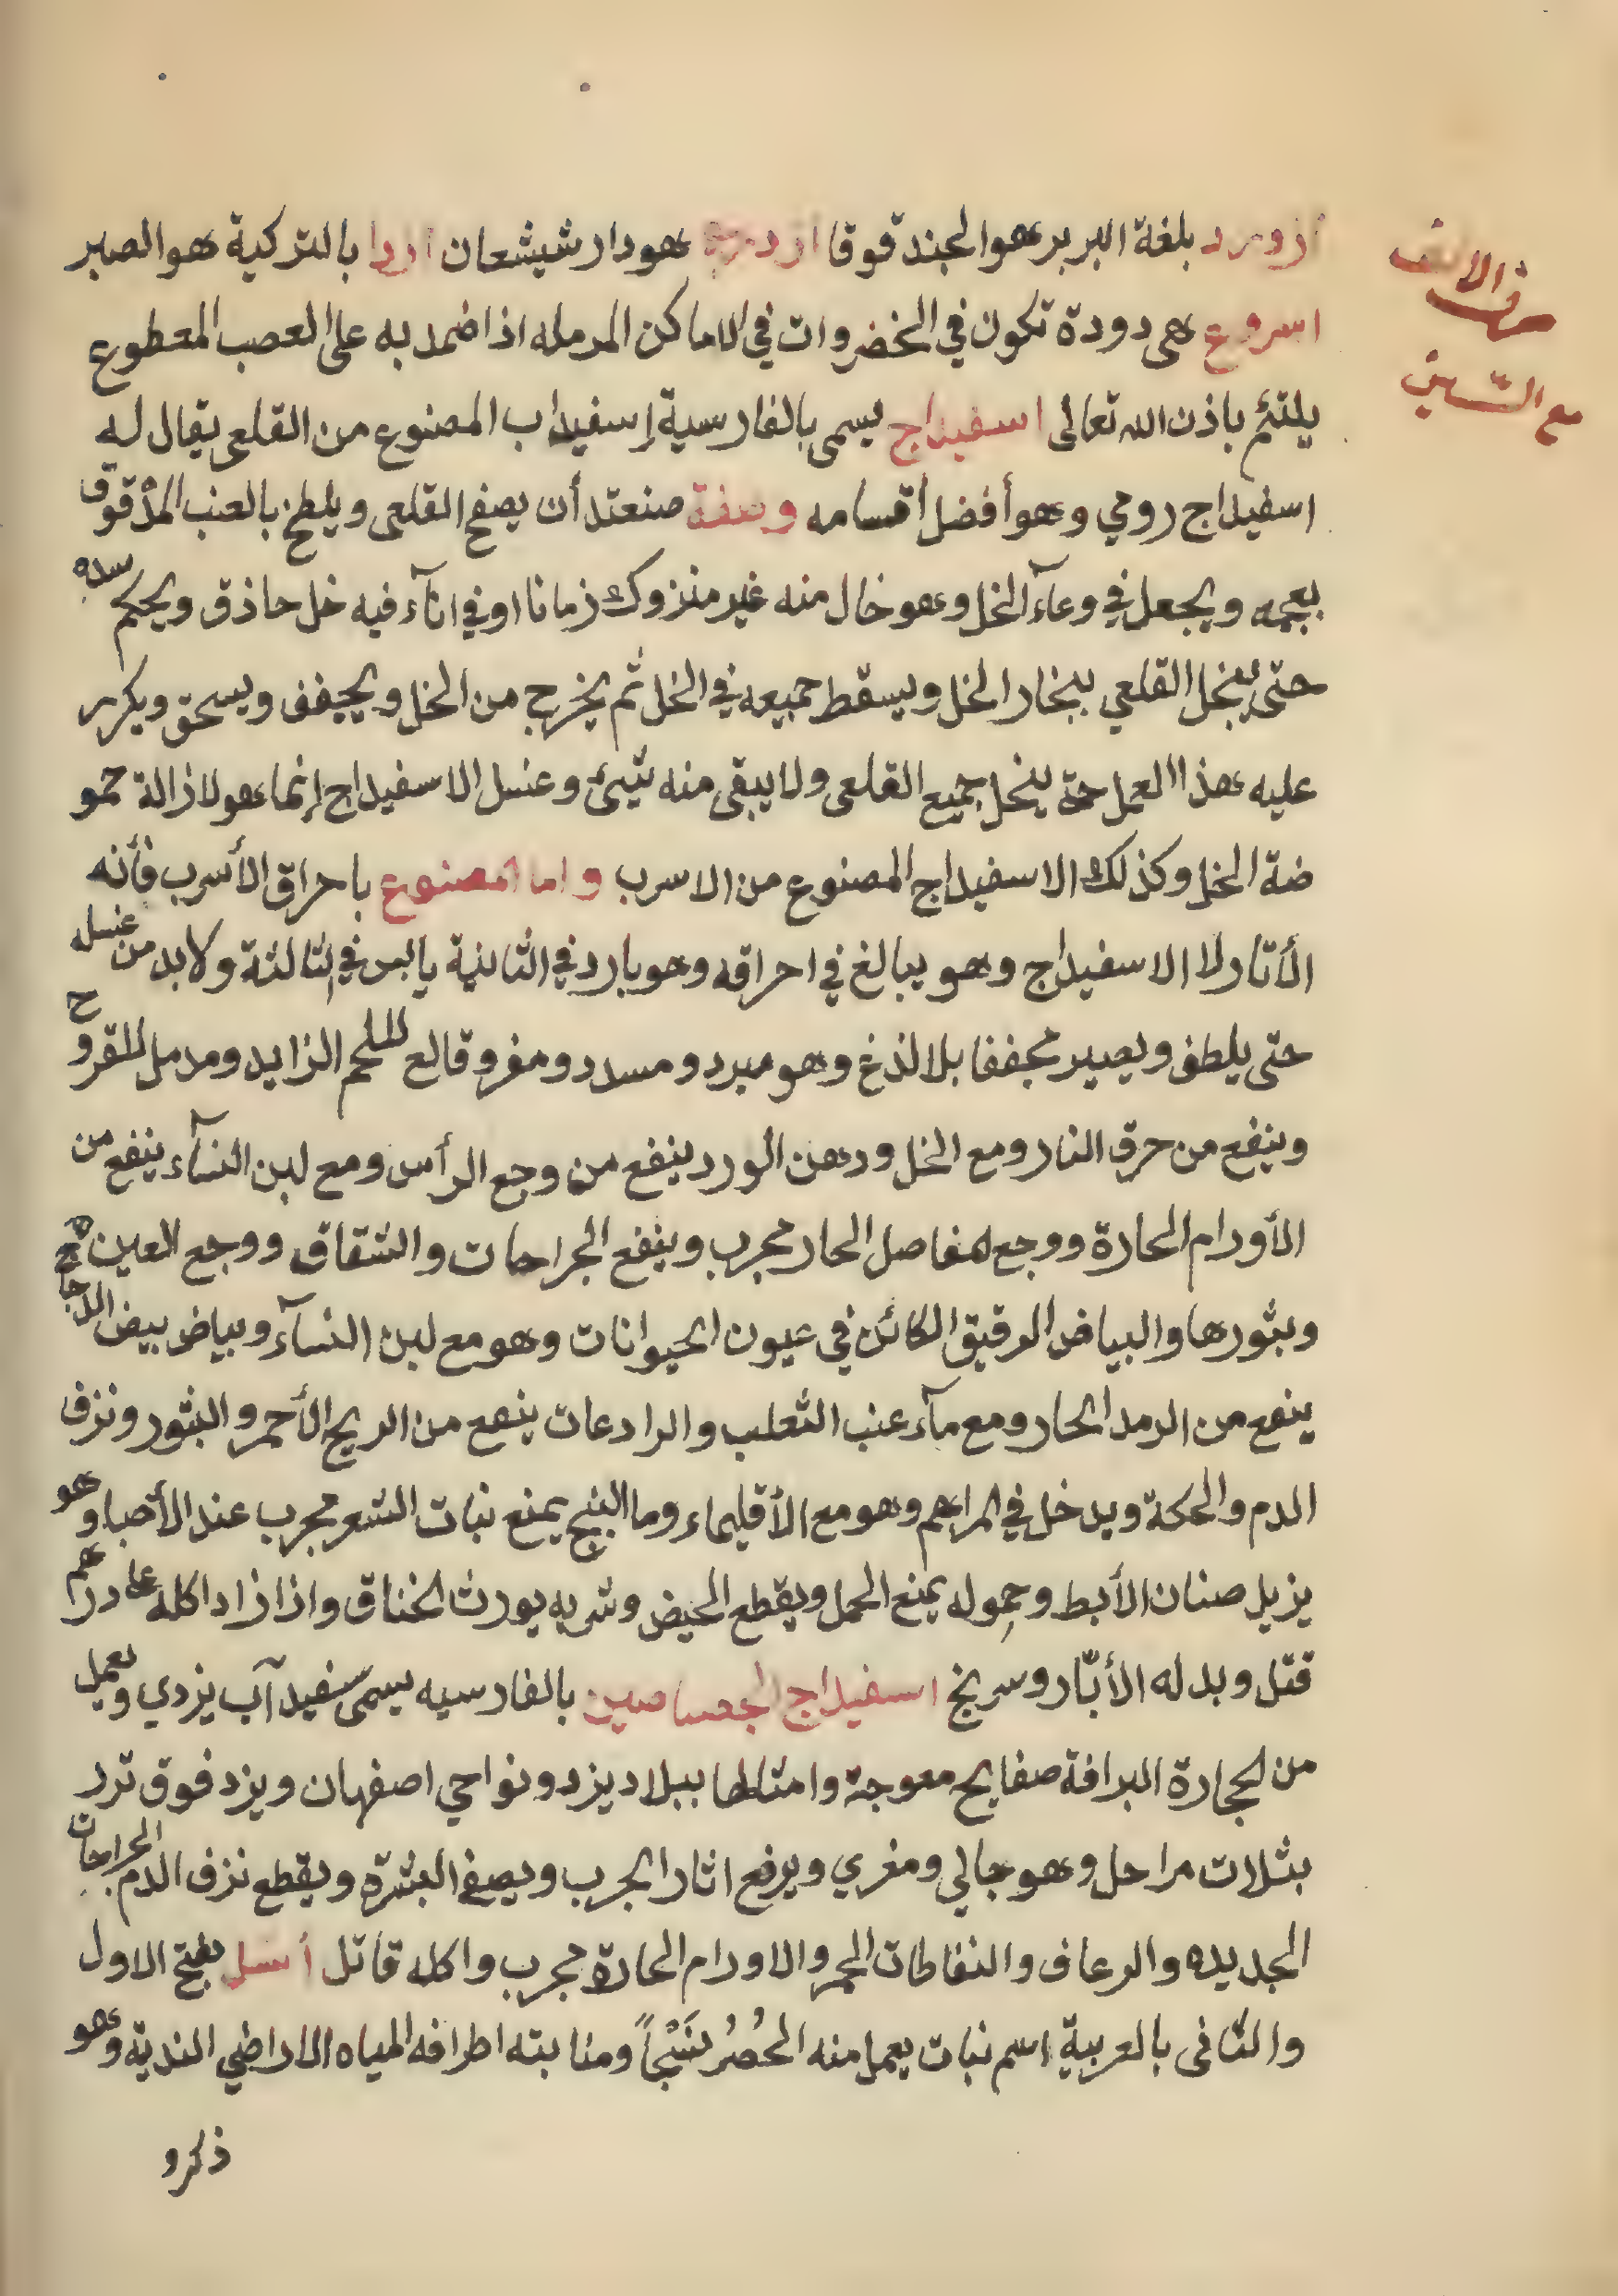 حرف الالف
مع السين
ازرود بلغة البربر هو الحندقوقا هو دار شيشعان ازرا بالتركية هو الصبر
اسروع هى دودة تكون في الخضروات في الاماكن المرمله اذا ضمد به على العصب المقطوع
يلتئم باذن الله تعالى اسفيداج يسمى بالفارسية إسفيداب المصنوع من القلعى يقال له
اسفيداج رومي وهو أفضل أقسامه وصفة صنعته أن يصفح القلعى ويلطخ بالعنب المدقوق
بعجمه ويجعل في وعآء الخل وهو خال منه غير منزوك زمانا او في انآء فيه خل حاذق ويحكم سده
حتى ينحل القلعي ببخار الخل ويسقط جميعه في الخل ثم يخرج من الخل ويجفف ويسحق ويكرر
عليه هذا العمل حتى ينحل جميع القلعى ولا يبقى منه شيئ وغسل الاسفيداج إنما هو لازالة حمو
ضة الخل وكذلك الاسفيداج المصنوع من الاسرب واما المصنوع باحراق الأسرب فأنه
الأنار لا الاسفيداج وهو يبالغ في احراقه وهو بارد في الثانية يابس في الثالثة ولا بد من غسله
حتى يلطف ويصير مجففا بلا لذغ وهو مبرد ومسدد ومغر وقالع للحم الزايد ومدمل للقروح
وينفع من حرق النار ومع الخل ودهن الورد ينفع من وجع الرأس ومع لبن النسآء ينفع من
الأورام الحارة ووجع المفاصل الحار مجرب وينفع الجراحات والشقاق ووجع العين
وبثورها والبياض الرقيق الكائن في عيون الحيوانات وهو مع لبن النسآء وبياض بيض الدجاج
ينفع من الرمد الحار ومع مآء عنب الثعلب والرادعات ينفع من الريح الأحمر والبثور ونزف
الدم والحكة ويدخل في المراهم وهو مع الأقليماء وما البنج يمنع نبات الشعر مجرب عند الأصبا وهو
يزيل صنان الأبط وحموله يمنع الحمل ويقطع الحيض وشربه يورث الخناق واذا زاد اكله على درهم
قتل وبدله الأبّار وسرنج اسفيداج الجصاصين بالفارسيه يسمى سفيد آب يزدي ويعمل
من الحجارة البراقة صفايح معوجة وامثالها ببلاد يزد ونواحي اصفهان ويزد فوق ترد
بثلاث مراحل وهو جالي ومغري ويرفع اثار الجرب ويصفي البشرة ويقطع نزف الدم الجراحات
الجديده والرعاف والنفاطات الحمر والاورام الحارة مجرب واكله قاتل أسل بفتح الاول
والثانى بالعربية اسم نبات يعمل منه الحُصُر نَسْجاً ومنابته اطرافه المياه الاراضي الندية وهو
ذكرو